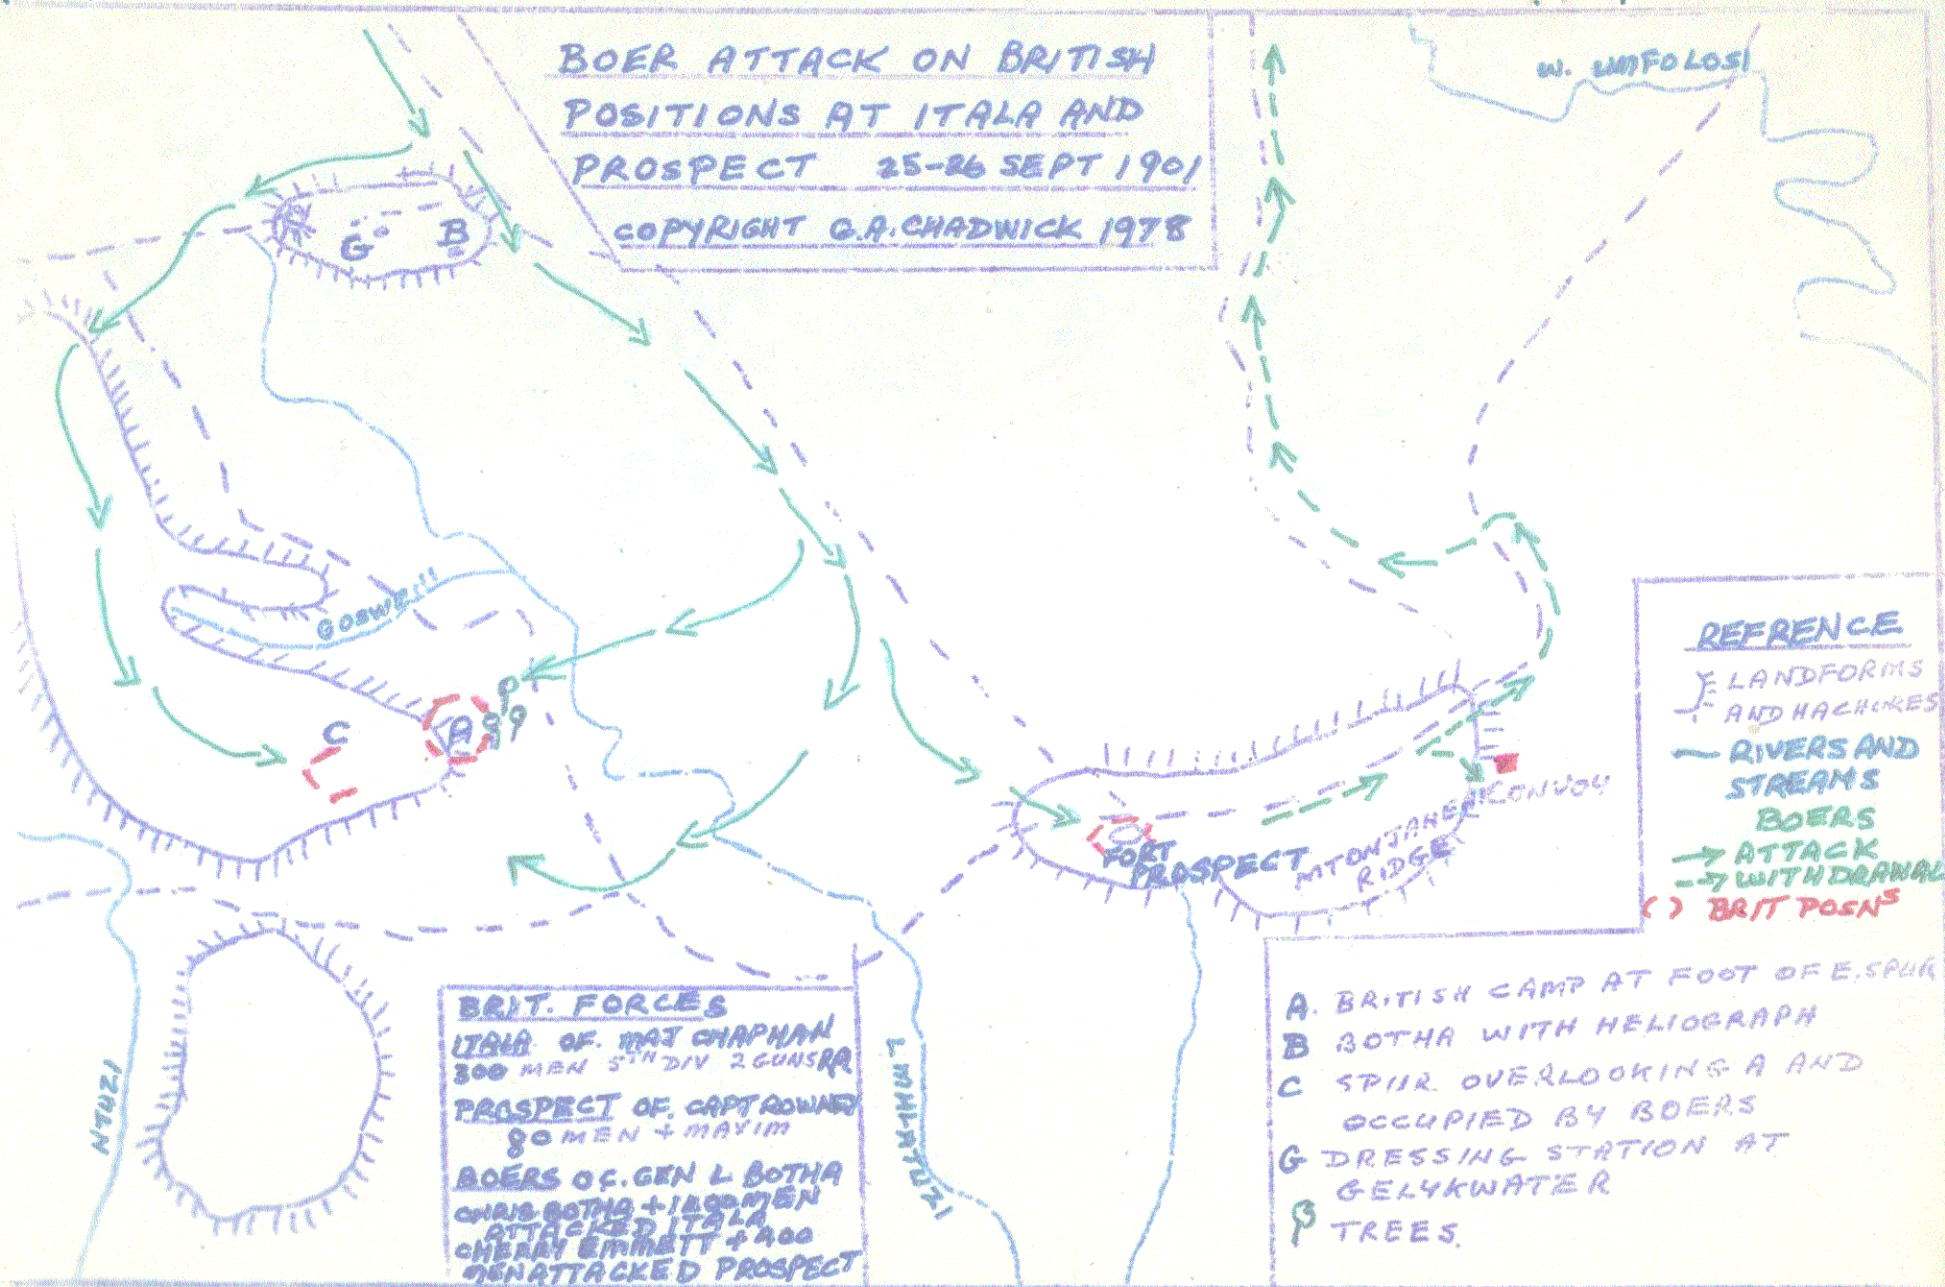 BOER ATTACK ON BRITISH
POSITIONS AT ITALA AND
PROSPECT 25-26 SEPT 1901
COPYRIGHT G.A.CHADWICK 1978
W. UMFOLOSI
G
B
GOSWE
C
A
FORT
PROSPECT
MTONJANENI
RIDGE
CONVOY
REFRENCE
LANDFORMS
AND HACHURES
RIVERS AND
STREAMS
BOERS
ATTACK
WITHDRAWAL
( ) BRIT POSNS
NTUZI
UMHLATUZI
BRIT. FORCES
ITALA OF. MAJ CHAPMAN
300 MEN 5TH DIV 2 GUNS RA
PROSPECT OF. CAPT ROWNEY
80 MEN + MAXIM
BOERS OC. GEN L BOTHA
CHRIS BOTHA + 1400 MEN
ATTACKED ITALA
CHERRY EMMETT + 400
MEN ATTACKED PROSPECT
A. BRITISH CAMP AT FOOT OF E. SPUR
B BOTHA WITH HELIOGRAPH
C SPUR OVERLOOKING A AND
OCCUPIED BY BOERS
G DRESSING STATION AT
GELYKWATER
TREES.